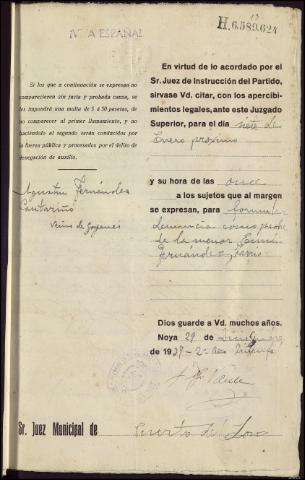 H.6.589.624
Si los que a continuación se expresan no
comparecieren sin justa y probada causa, se
les impondrá una multa de 5 a 50 pesetas, de
no comparecer al primer llamamiento, y no
haciéndolo al segundo serán conducidos por
la fuerza pública y procesados por el delito de
denegación de auxilio.
Agustín Fernández
Vecino de Goyanes
En virtud de lo acordado por el
Sr. Juez de Instrucción del Partido,
sírvase Vd. citar, con los apercibi-
mientos legales, ante este Juzgado
Superior, para el día siete de
Enero próximo
y su hora de las once
a los sujetos que al margen
se expresan, para formular
denuncia como padre
de la menor
Fernández
Dios guarde a Vd. muchos años.
Noya 29 de Diciembre
de 1937-2º Año Triunfal
Sr. Juez Municipal de Puerto del Son